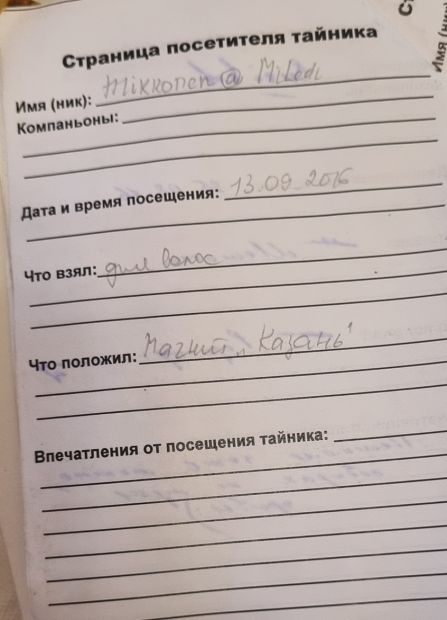 Страница посетителя тайника
Имя (ник): Mikkonen @ Miledi
Компаньоны:
Дата и время посещения: 13.09.2016
Что взял: для волос
Что положил: Магнит „Казань"
Впечатления от посещения тайника:
Ст
Имя (ник